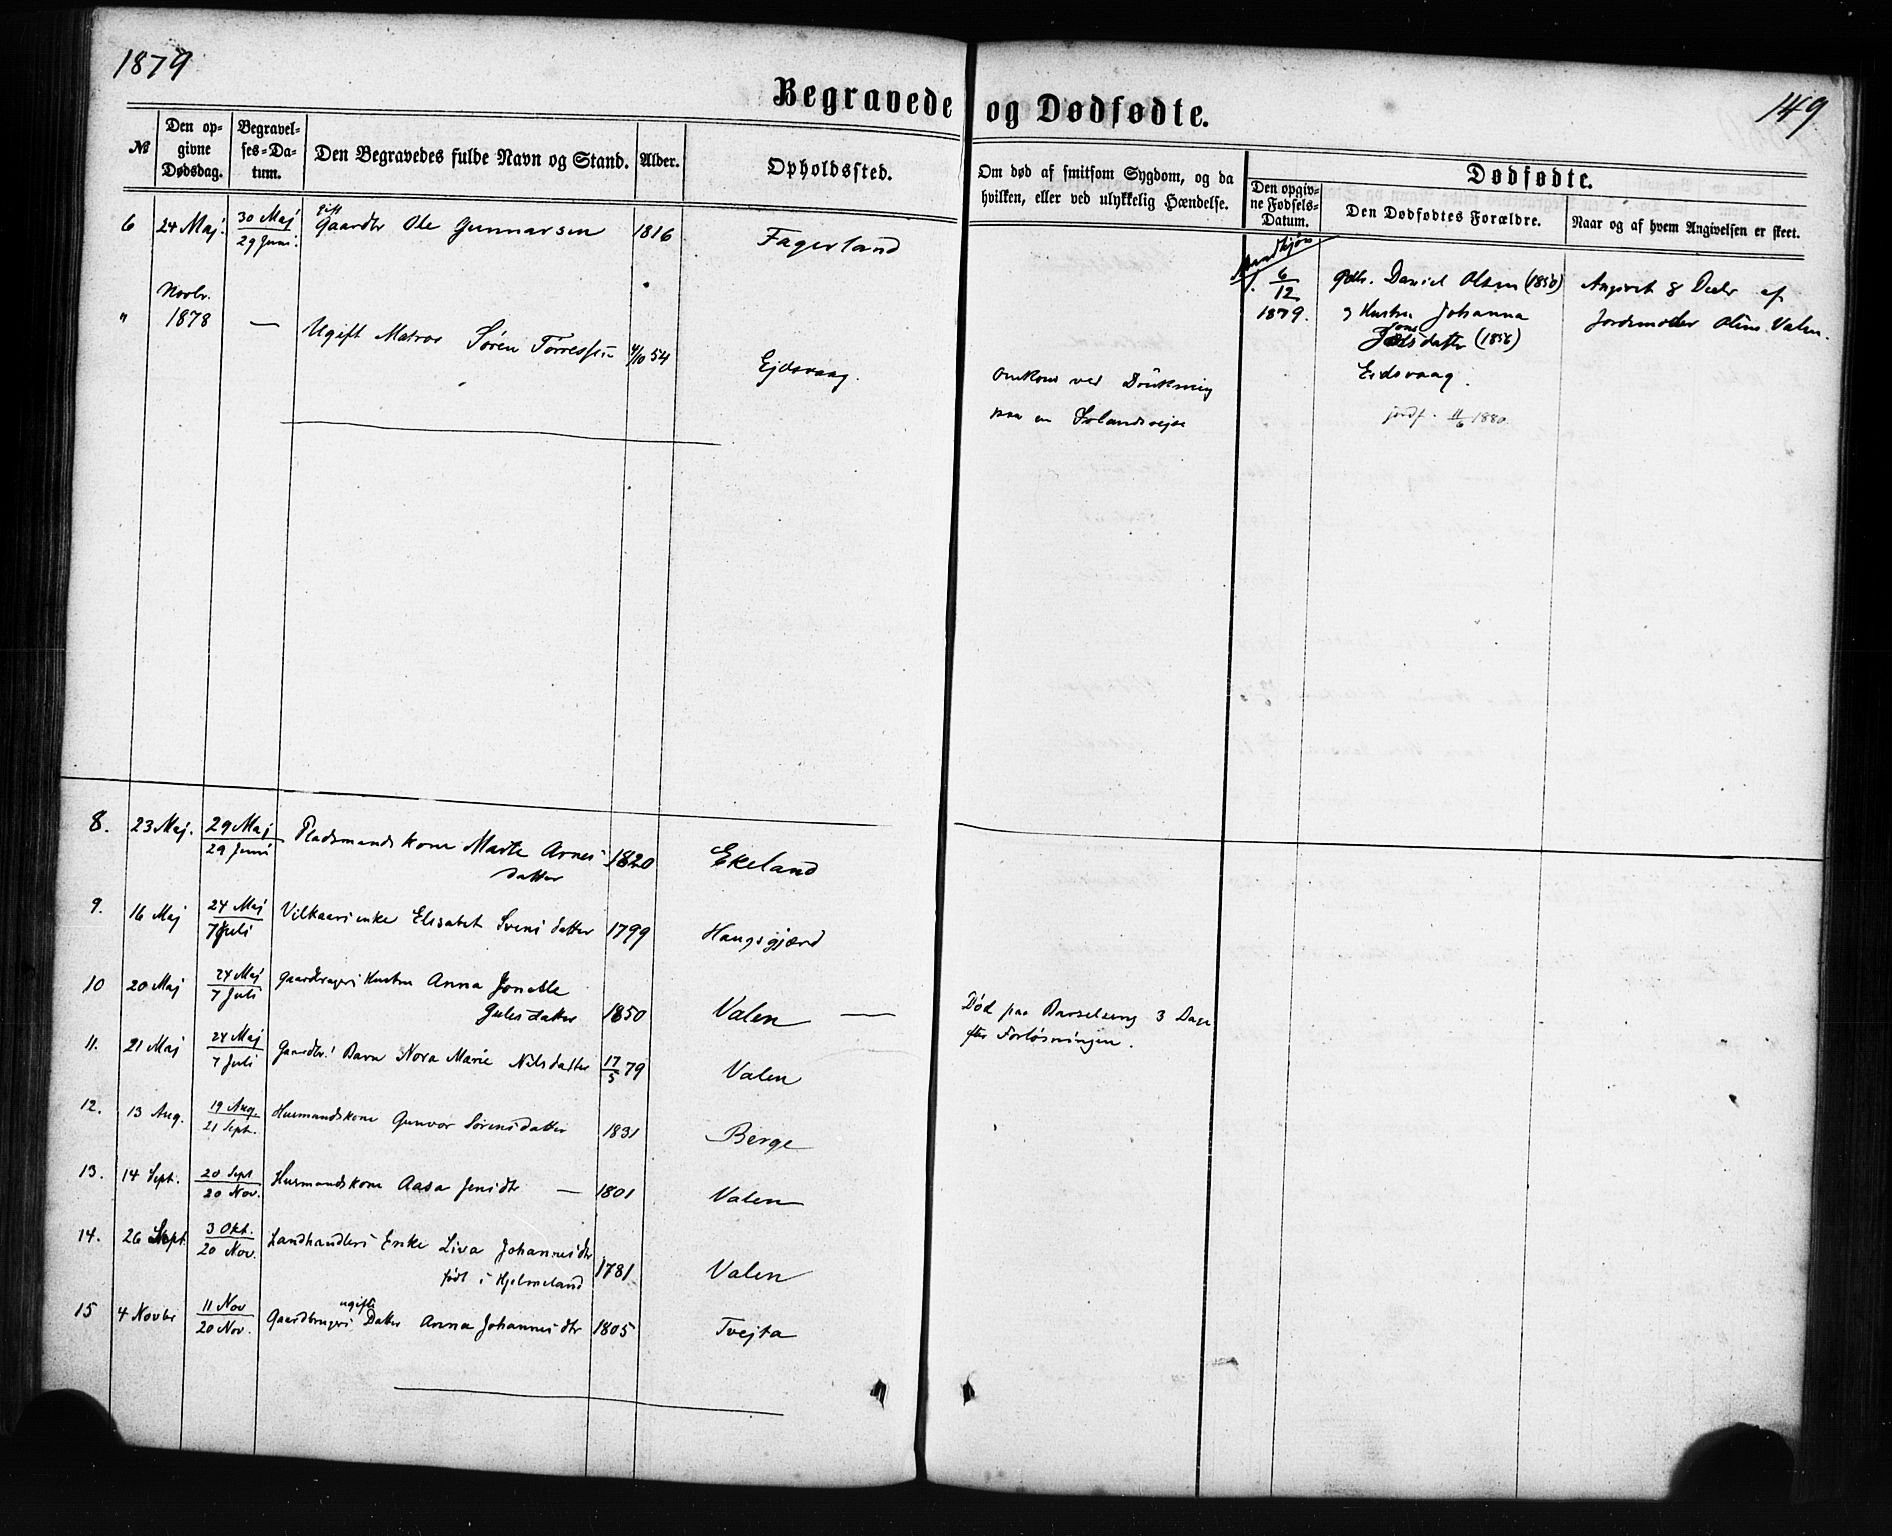 1879
149
Begravede og Dødfødte.
№
Den op-
givne
Dødsdag.
Begravel-
ses-Da-
tum.
Den Begravedes fulde Navn og Stand.
Alder.
Opholdssted.
Om død af smitsom Sygdom, og da
hvilken, eller ved ulykkelig Hændelse.
Dødfødte.
Den opgiv-
ne Fødsels-
Datum.
Den Dødfødtes Forældre.
Naar og af hvem Angivelsen er skeet.
6 24 Maj. 30 Maj gift
29 Juni. Gaardbr Ole Gunnarsen 1816 Fagerland
1. 6/12 1879.
Gdbr. Daniel Olsen (1850)
og Hustru Johanna
datter (1856)
Eidsvaag.
jordf. 11/6 1880
Angivet 8 Decbr af
Jordmoder Valen.
" Novbr. 1878 — Ugift Matros Søren Torressen 4/10 54 Ejdsvaag.
omkom ved Drukning
paa en Islandsrejse
8. 23 Maj. 29 Maj
29 Juni Pladsmandskone Marte Arnes
datter 1820 Ekeland
9. 16 Maj 24 Maj
7 Juli Vilkaarsenke Elisabet Svensdatter 1799 Haugsgjærd
10 20 Maj 24 Maj
7 Juli Gaardbrugers Hustru Anna Jonette
Gulesdatter 1850 Valen —
Død paa Barselseng 3 Dage
efter Forløsningen.
11. 21 Maj 24 Maj
7 Juli Gaardbr.s Barn Nora Marie Nilsdatter 17/5 79 Valen
12. 13 Aug. 19 Aug.
21 Sept. Husmandskone Gunvor Sørensdatter 1831 Berge
13. 14 Sept. 20 Sept
20 Nov. Husmandskone Aasa Jensdtr — 1801 Valen
14. 26 Sept. 3 Okt.
20 Nov. Landhandlers Enke Liva Johannesdtr
født i Hjelmeland 1781 Valen
15 4 Novbr 11 Nov
20 Nov. Gaardbrugers ugifte Datter Anna Johannesdtr 1805 Tvejta